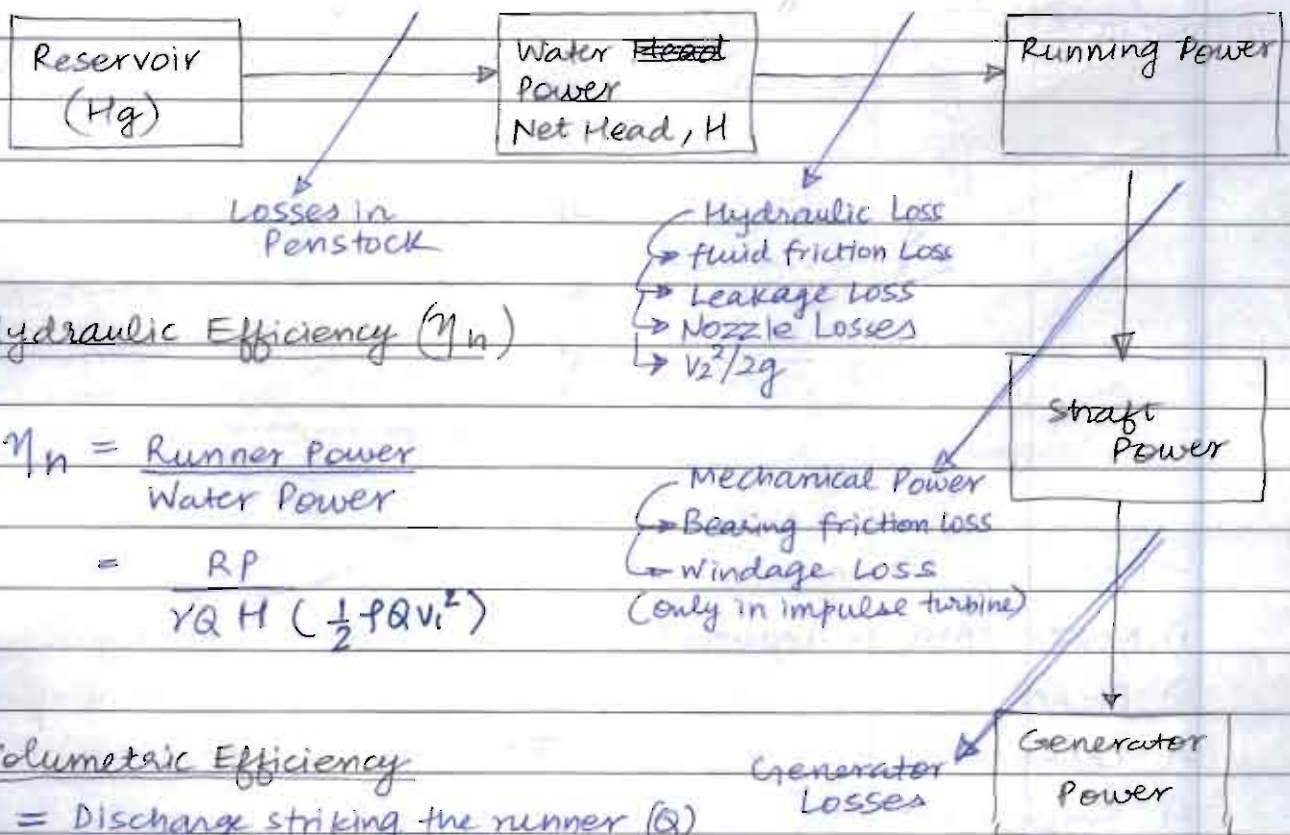 Reservoir
(Hg)
Water Head
Power
Net Head, H
Running Power
Losses in
Penstock
Hydraulic Loss
fluid friction Loss
Leakage Loss
Nozzle Losses
V₂²/2g
ydraulic Efficiency (ηn)
ηn = Runner Power
Water Power
= RP
γQ H (½ ρQV₁²)
Shaft
Power
Mechanical Power
Bearing friction Loss
Windage Loss
(only in impulse turbine)
olumetric Efficiency
= Discharge striking the runner (Q)
Generator
Losses
Generator
Power